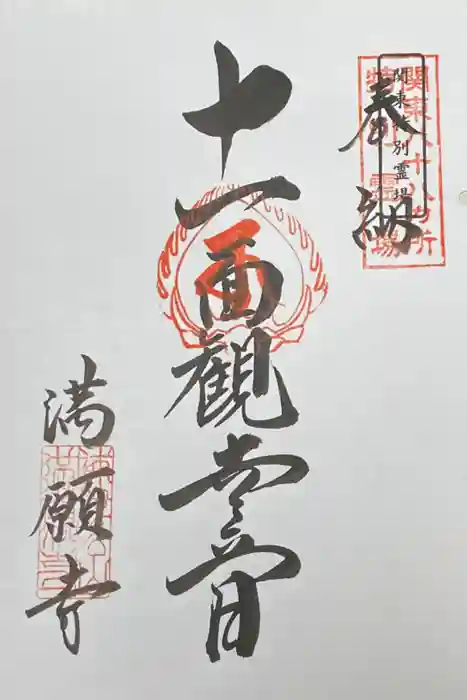 奉納
関東八十八ヵ所
特別霊場
関東特別霊場
十一面観世音
満願寺